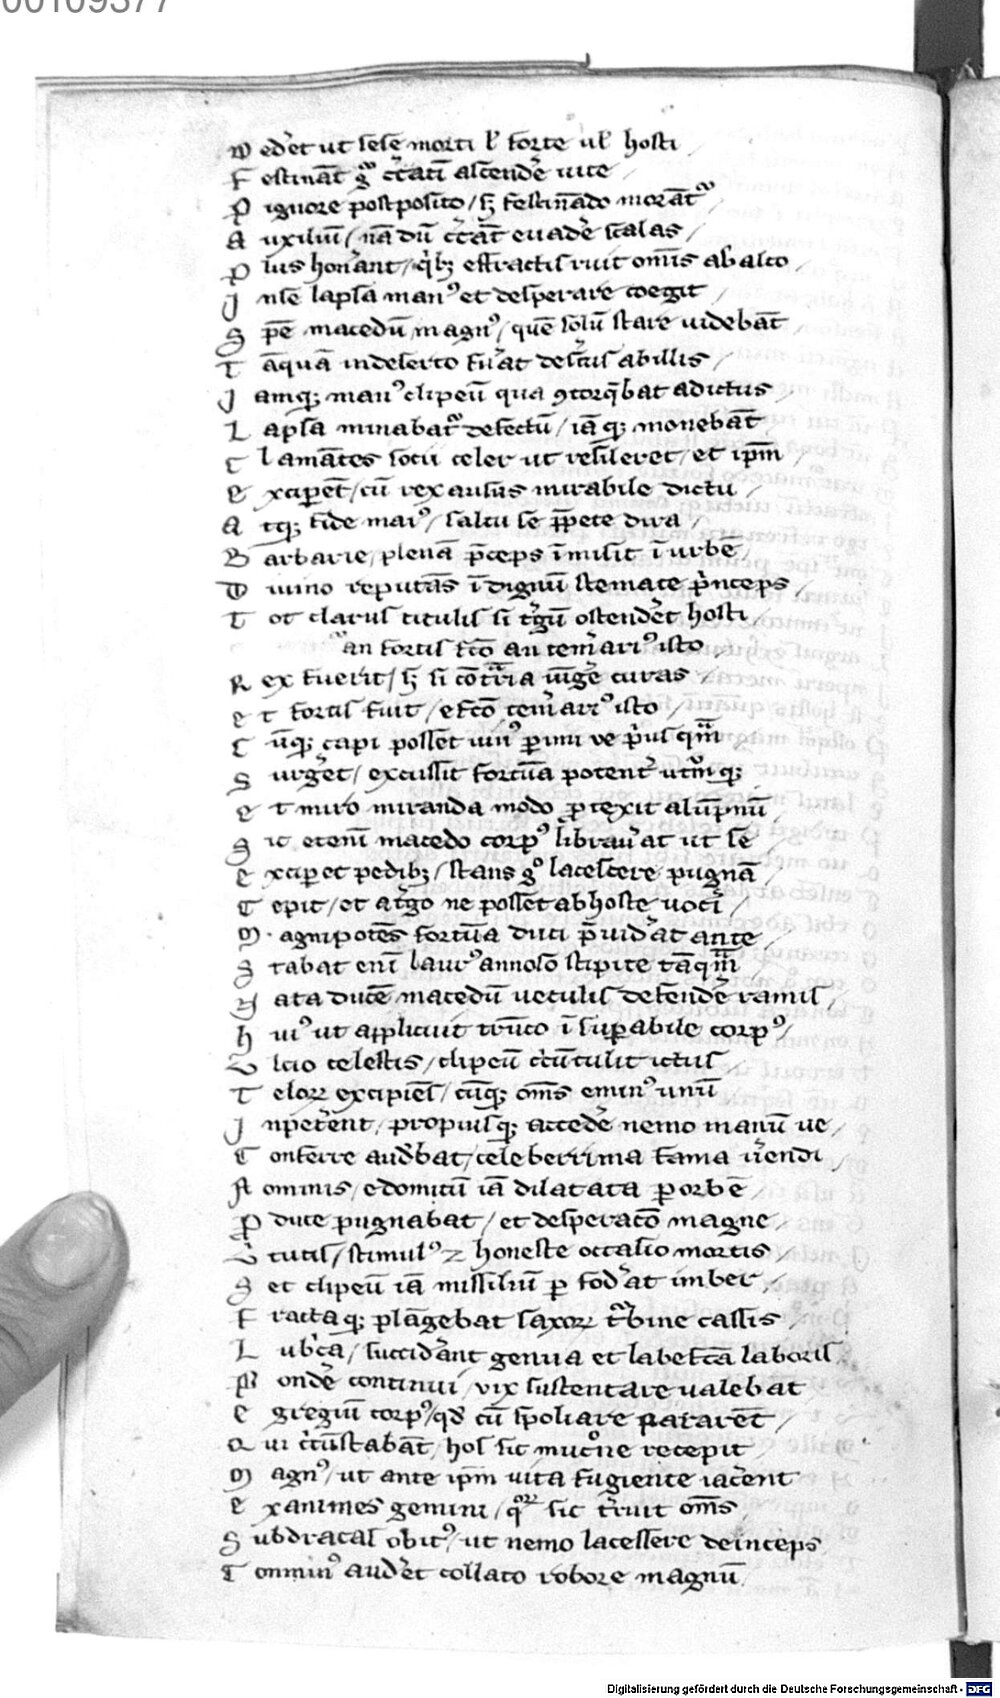 00109377
D ed᷑et ut sese morti ł forte uł hosti
F estināt gͦ c᷑tatī ascend᷑e uite
P ignore postposito / sꝫ festinādo morāt᷑
A uxiliū / nā dū c᷑tāt euad᷑e scalas
P lus hon᷑ant / q̇bꝫ effractis ruit om̄is ab alto
I nse lapsa manꝰ et desperare coegit
S pē macedū magnꝰ / quē solū stare uidebāt
T āquā in deserto fu᷑at desertus ab illis
I amqꝫ manꝰ clipeū qua ꝯtorq̄bat ad ictus
L apsa minabat᷑ defectū / iāqꝫ monebāt
C lamātes socii celer ut resiliret / et ip̄m
E xcip̄et / cū rex ausus mirabile dictu
A tqꝫ fide maiꝰ / saltu se p̄pete dira
B arbarie / plenā p̄ceps īmisit ī urbē
D iuino reputās īdignū stemate ṗnceps
T ot clarus titulis si t᷑gū ostend᷑et hosti
an fortis fc̄o an tem᷑ariꝰ isto
R ex fuerit / sꝫ si cōt᷑ria iūg᷑e curas
E t fortis fuit / et fc̄o tem᷑ariꝰ isto
C ūqꝫ capi posset uiuꝰ ꝑimi ue ṗus qͣm̄
S urg᷑et / excussit fortūa potent᷑ ut᷑mqꝫ
E t miro miranda modo ꝓtexit alūpnū
S ic etenī macedo corpꝰ librau᷑at ut se
E xciꝑet pedibꝫ / stans gͦ lacescere pugnā
C epit / et a t᷑go ne posset ab hoste uoc᷑i
M agnipotēs fortūa duci p̄uid᷑at ante
S tabat enī laurꝰ annoso stipite tāqͣm̄
N ata ducē macedū uetulis defend᷑e ramis
H uiꝰ ut applicuit trūco īsuꝑabile corpꝰ
U lcio celestis / clipeū c᷑cūtulit ictus
T eloꝝ excipiēs / cūqꝫ om̄s eminꝰ unū
I npet᷑ent / propiusqꝫ acced᷑e nemo manū ue
C onferre aud᷑bat / celeberrima fama u᷑endi
N ominis / edomitū iā dilatata ꝑ orbē
P duce pugnabat / et desperac̄o magne
U ᷑tutis / stimulꝰ ⁊ honeste occasio mortis
S et clipeū iā missiliū ꝑfod᷑at imber
F ractaqꝫ plāgebat saxoꝝ t᷑bine cassis
L ub᷑ca / succid᷑ant genua et labefc̄a laboris
P ond᷑e continui / uix sustentare ualebat
E gregiū corpꝰ / qd̄ cū spoliare pararēt
Q ui c᷑cūstabāt / hos sic muc᷑ne recepit
M agnꝰ / ut ante ip̄m uita fugiente iac᷑ent
E xanimes gemini / qͦꝝ sic t᷑ruit om̄s
S ubdracas obitꝰ / ut nemo lacessere deinceps
C ominꝰ aud᷑et collato robore magnū
Digitalisierung gefördert durch die Deutsche Forschungsgemeinschaft - DFG